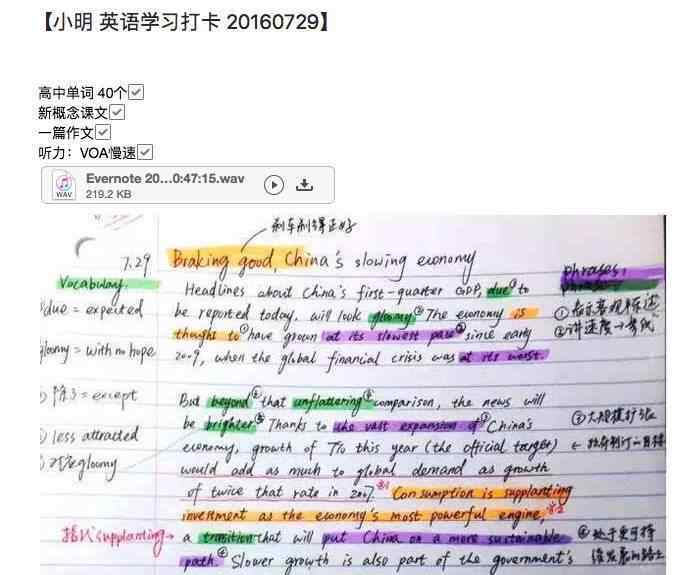 【小明 英语学习打卡 20160729】
高中单词 40个
新概念课文
一篇作文
听力：VOA慢速
Evernote 20...0:47:15.wav
WAV
219.2 KB
刹车刹得正好
7.29 Braking good, China's slowing economy
Vocabulary.
phrases,
Headlines about China's first-quarter GDP, due① to
due = expected
be reported today, will look gloomy② The economy is
①表示客观陈述
thought to① have grown at its slowest pace② since early
②讲速度→考试
gloomy = with no hope
2009, when the global financial crisis was at its worst.
除了 = except
But beyond that unflattering comparison, the news will
less attracted
be brighter. Thanks to the vast expansion of③ China's
③大规模扩张
对应gloomy
economy, growth of 7% this year (the official target)
would add as much to global demand as growth
of twice that rate in 2007. Consumption is supplanting
investment as the economy's most powerful engine,
指代supplanting →
a transition that will put China on a more sustainable
④处于更可持
path.④ Slower growth is also part of the government's